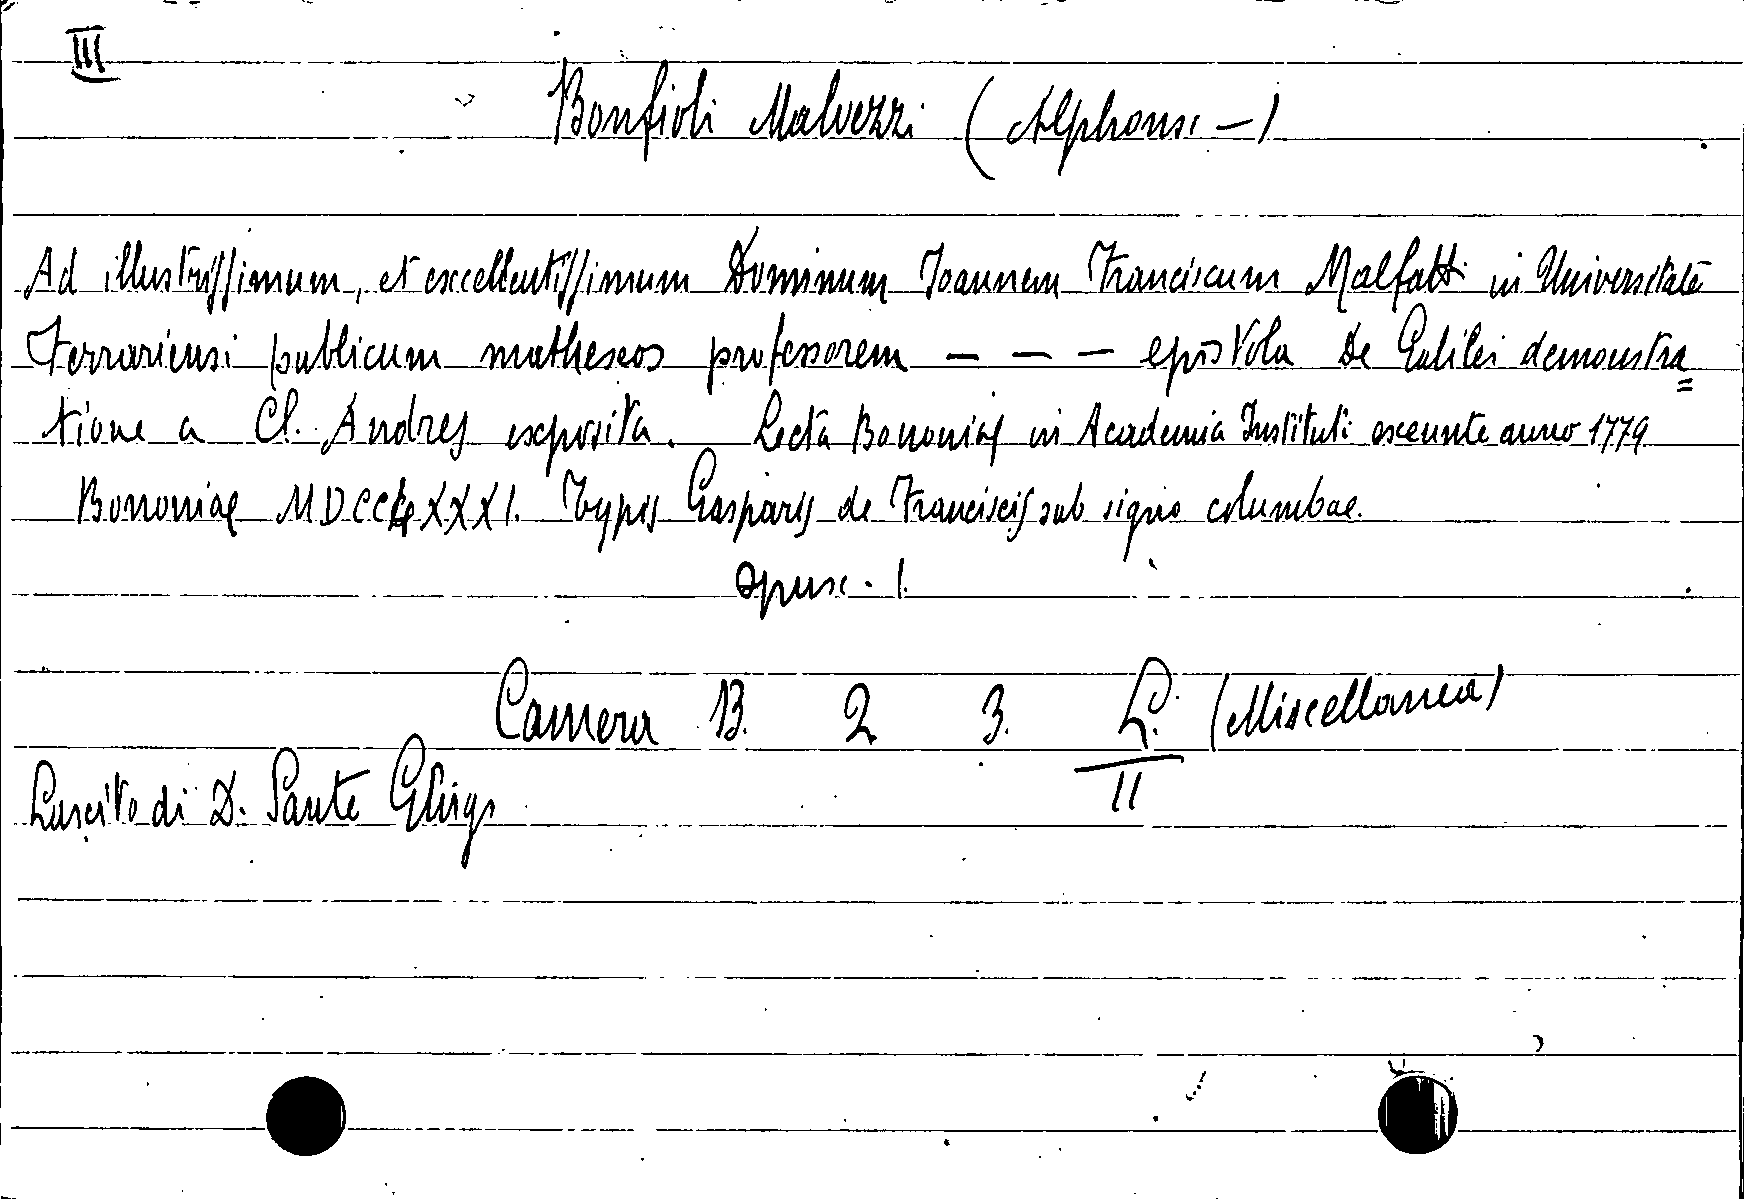 III
Bonfioli Malvezzi (Alphonsi —)
Ad illustrissimum, et excellentissimum Dominum Joannem Franciscum Malfatti in Universitate
Ferrariensi publicum matheseos professorem — — — epistola De Galilei demonstra=
tione a Cl. Andres exposita. Lecta Bononiae in Academia Instituti exeunte anno 1779
Bononiae MDCCLXXXI. Typis Gasparis de Franciscis sub signo columbae.
Opusc. 1.
Camera B. 2 3. L. (Miscellanea)
II
Lascito di D. Sante